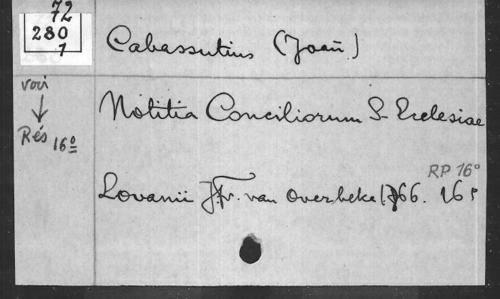 72
280
1
Cabassutius (Joan̄.)
voir
↓
Rés 16º
Notitia Conciliorum S. Ecclesiae
RP 16º
Lovanii J. Fr. van Overbeke 1766. 16º